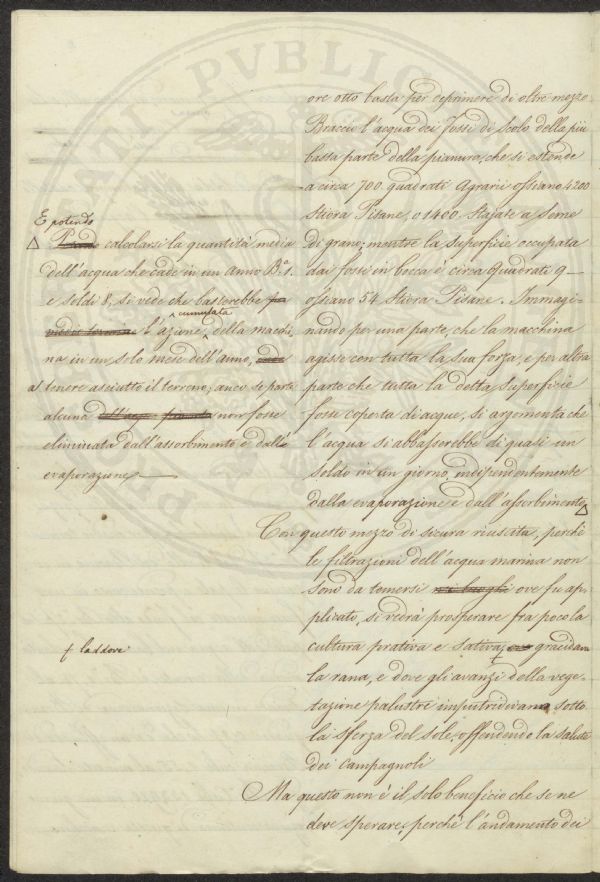 ore otto basta per deprimere di oltre mezzo
Braccio l'acqua dei Fossi di Scolo della più
bassa parte della pianura, che si estende
a circa 700. quadrati Agrarii ossiano 4200
Stiora Pisane, o 1400. Stajate a seme
di grano; mentre la superficie occupata
dai fossi in bocca è circa Quadrati 9_
ossiano 54 Stiora Pisane. Immagi-
nando per una parte, che la macchina
agisse con tutta la sua forza, e per altra
parte che tutta la detta superficie
fosse coperta di acque, si argomenta che
l'acqua si abbasserebbe di quasi un
soldo in un giorno, indipendentemente
dalla evaporazione e dall'assorbimento Δ
Con questo mezzo di sicura riuscita, perchè
le filtrazioni dell'acqua marina non
sono da temersi nei luoghi ove fu ap-
plicato, si vedrà prosperare fra poco la
cultura prativa e sativa, ove gracidava
la rana, e dove gli avanzi della vege-
tazione palustre imputridivano sotto
la sferza del sole, offendendo la salute
dei campagnoli
Ma questo non è il solo beneficio che se ne
deve sperare; perchè l'andamento dei
E potendo
Δ calcolarsi la quantità media
dell'acqua che cade in un anno B.a 1.
e soldi 8, si vede che basterebbe
cumulata
l'azione della macchi-
na in un solo mese dell'anno,
a tenere asciutto il terreno; anco se parte
alcuna non fosse
eliminata dall'assorbimento e dalla
evaporazione
f laddove
PVBLIC